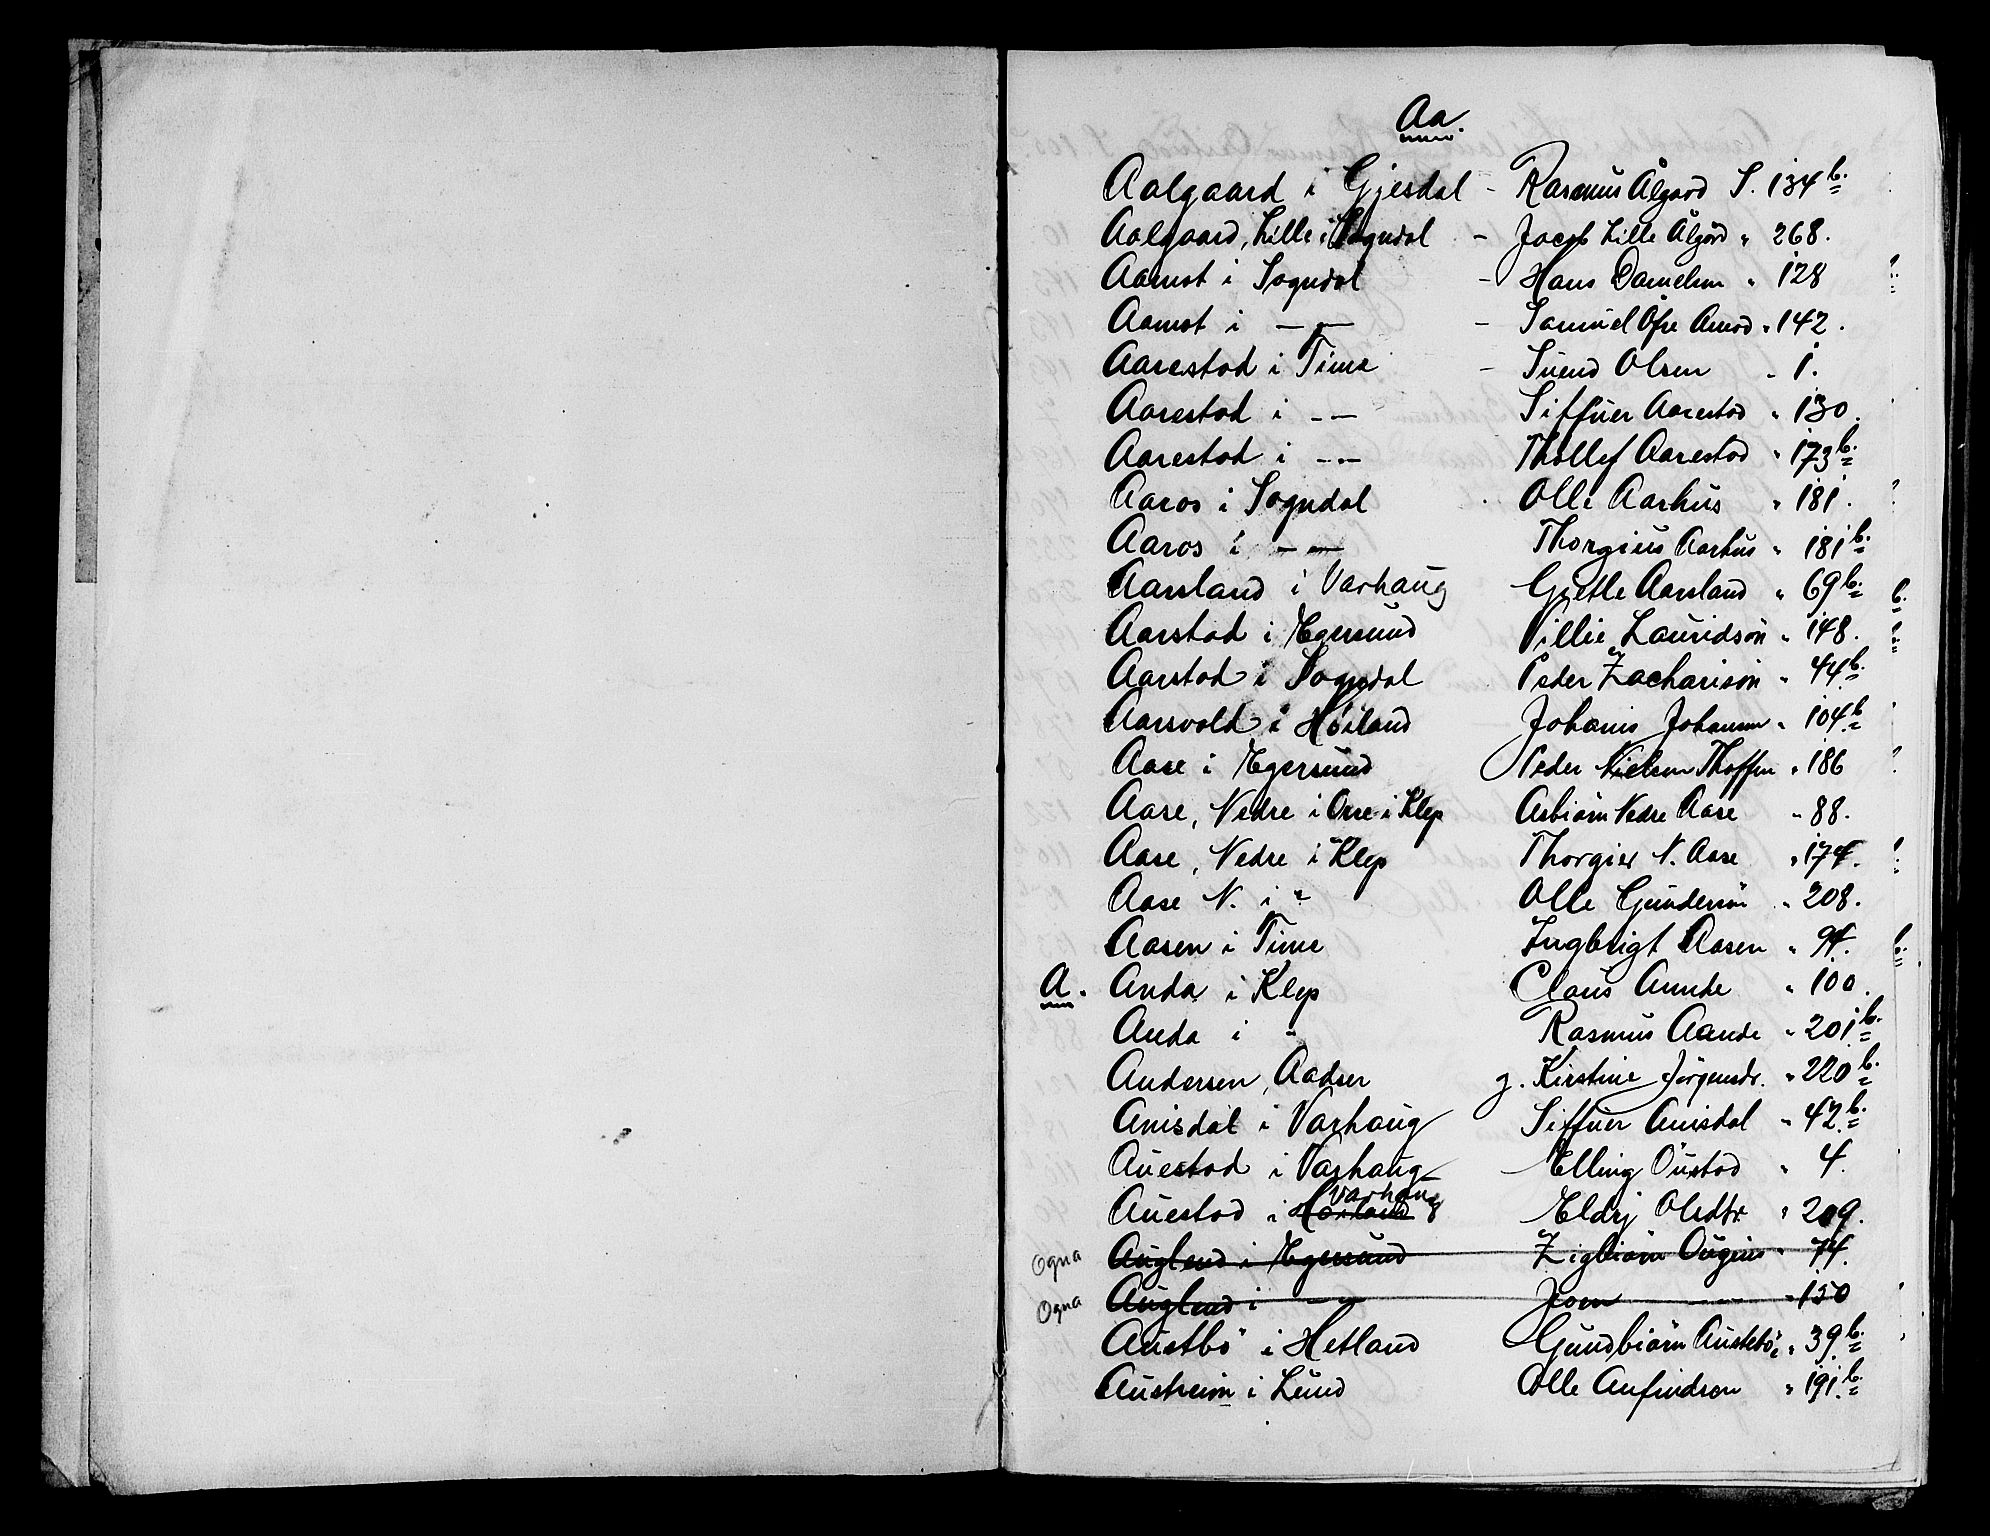 Aa.
Aalgaard i Gjesdal - Rasmus Ålgård S. 134 b.
Aalgaard, Lille i Sogndal - Jacob Lille Ålgård " 268.
Aamot i Sogndal - Hans Danielsen " 128
Aamot i — — - Samuel Öfre Amod " 142.
Aarestad i Time - Svend Olsen " 1.
Aarestad i — — Siffuer Aarestad " 130.
Aarestad i — — Thollef Aarestad " 173 b.
Aaros i Sogndal Olle Aarhus " 181.
Aaros i — — Thorgius Aarhus " 181 b.
Aarsland i Varhaug Gretle Aarsland " 69 b.
Aarstad i Egersund Villie Lauridsön " 148.
Aarstad i Sogndal Peder Zacharisön " 44 b.
Aarsvold i Höiland Johanis Johansen " 104 b
Aase i Egersund Peder Nielsen Thoffen " 186
Aase, Nedre i Orre i Klep Asbiörn Nedre Aase " 88.
Aase, Nedre i Klep Thorgier N. Aase " 174.
Aase N. i " Olle Gundersön " 208.
Aasen i Time Ingbrigt Aasen " 94.
A. Anda i Klep Claus Annde " 100.
Anda i " Rasmus Aande " 201 b.
Andersen, Aadser g. Kirstine Jörgensdr. " 220 b.
Anisdal i Varhaug Siffuer Anisdal " 42 b.
Auestad i Varhaug Elling Oustad " 4.
Varhaug
Auestad i Höiland Eldrj Olsdtr " 209.
Ogna Auglend i Egersund Zigbiörn Ougins " 74.
Ogna Auglend i — — Joen — — " 150
Austbö i Hetland Gundbiörn Austebö " 39 b.
Austreim i Lund Olle Anfindson " 191 b.